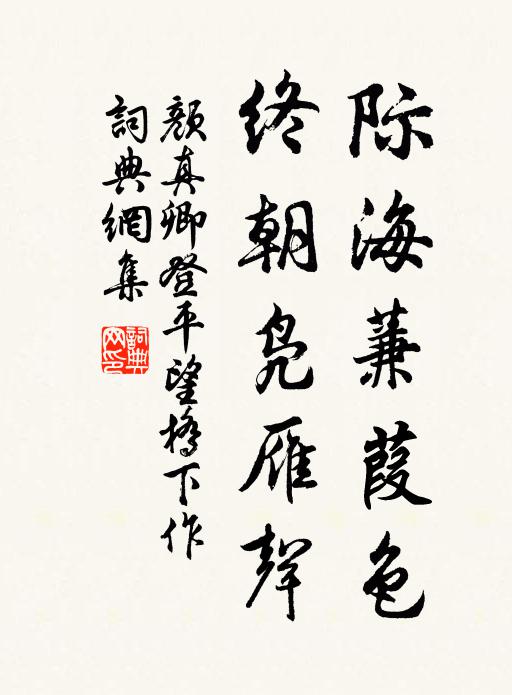 际海蒹葭色
终朝凫雁聲
顔真卿登平望橋下作
詞典網集
詞典网印